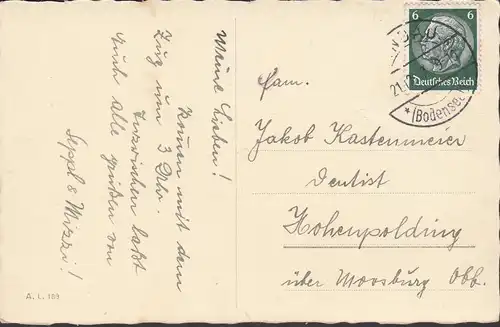 Meine Lieben!
Kommen mit dem
Zug um 3 Uhr.
Inzwischen laßt
Euch alle grüßen von
Seppl & Mizzi!
A. L. 109
6 6
Deutsches Reich
LINDAU
21.
* (Bodensee)
Fam.
Jakob Kastenmeier
Dentist
Hohenpolding
über Moosburg Obb.